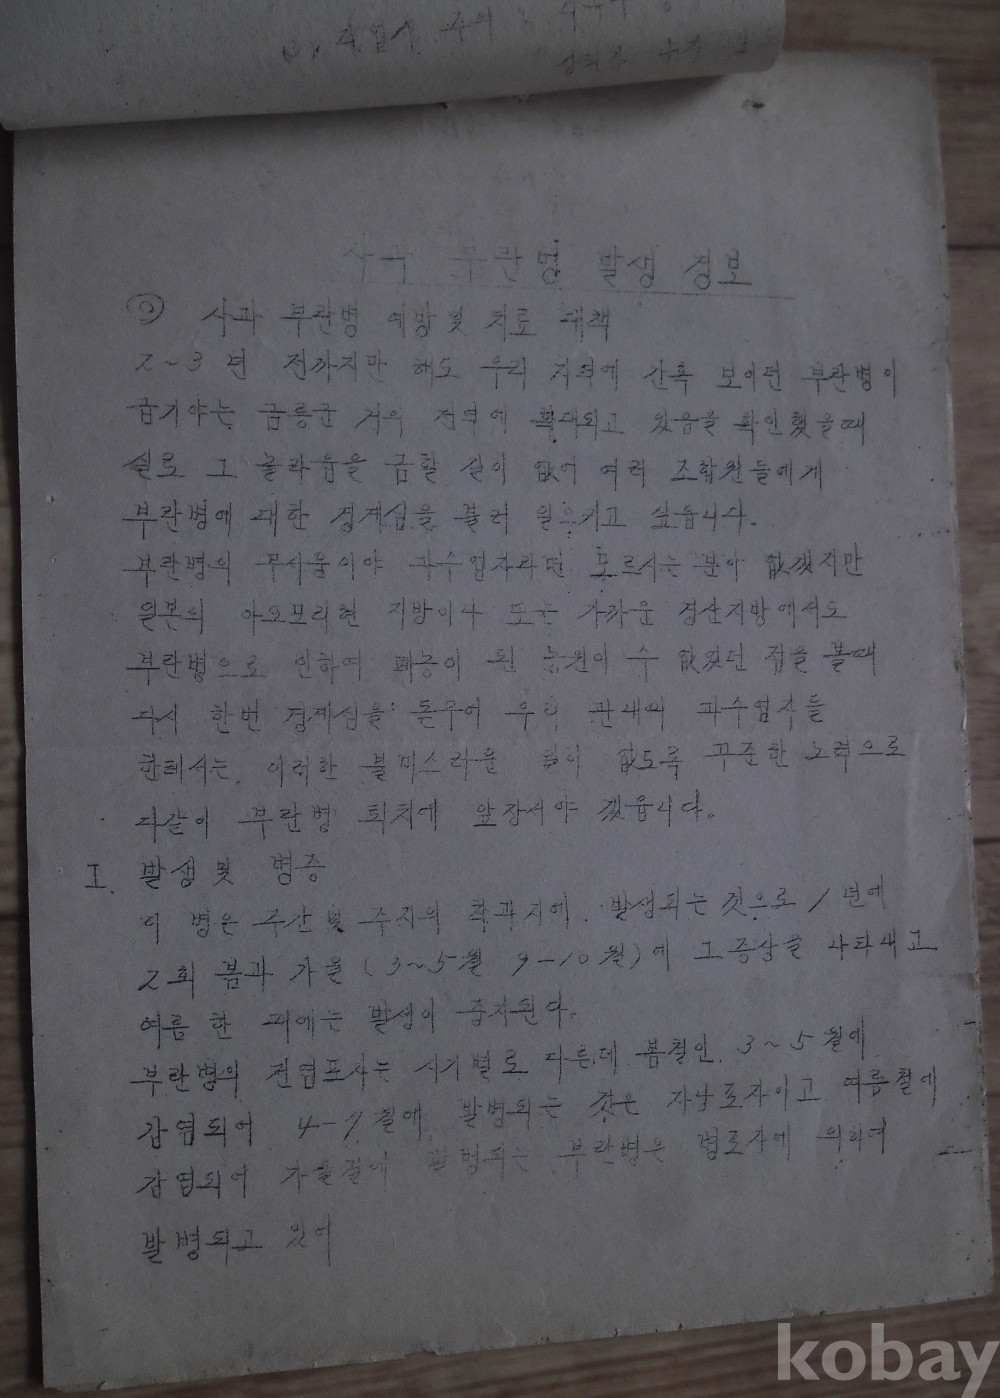 부란병 발생 경보
◎ 사과 부란병 예방 및 치료 대책
2~3년 전까지만 해도 우리 지역에 간혹 보이던 부란병이
급기야는 금릉군 거의 전역에 확대되고 있음을 확인했을때
실로 그 놀라움을 금할 길이 없어 여러 조합원들에게
부란병에 대한 경계심을 불러 일으키고 싶읍니다.
부란병의 무서움이야 과수업자라면 모르시는 분야 없겠지만
일본의 아오모리현 지방이나 또는 가까운 경산지방에서도
부란병으로 인하여 폐농이 된 농원이 수 없었던 점을 볼때
다시 한번 경계심을 돋우어 우리 관내의 과수업자들
한테서는 이러한 불미스러운 일이 없도록 꾸준한 노력으로
다같이 부란병 퇴치에 앞장서야 겠읍니다.
I. 발생 및 병증
이 병은 주간 및 주지의 착과지에 발생되는 것으로 1년에
2회 봄과 가을 (3~5월 9-10월)에 그 증상을 나타내고
여름 한 때에는 발생이 중지된다.
부란병의 전염포자는 시기별로 다른데 봄철인 3~5월에
감염되어 발병되는 것은 자낭포자이고 여름철에
감염되어 가을철에 발병되는 부란병은 병포자에 의하여
발병되고 있어
kobay